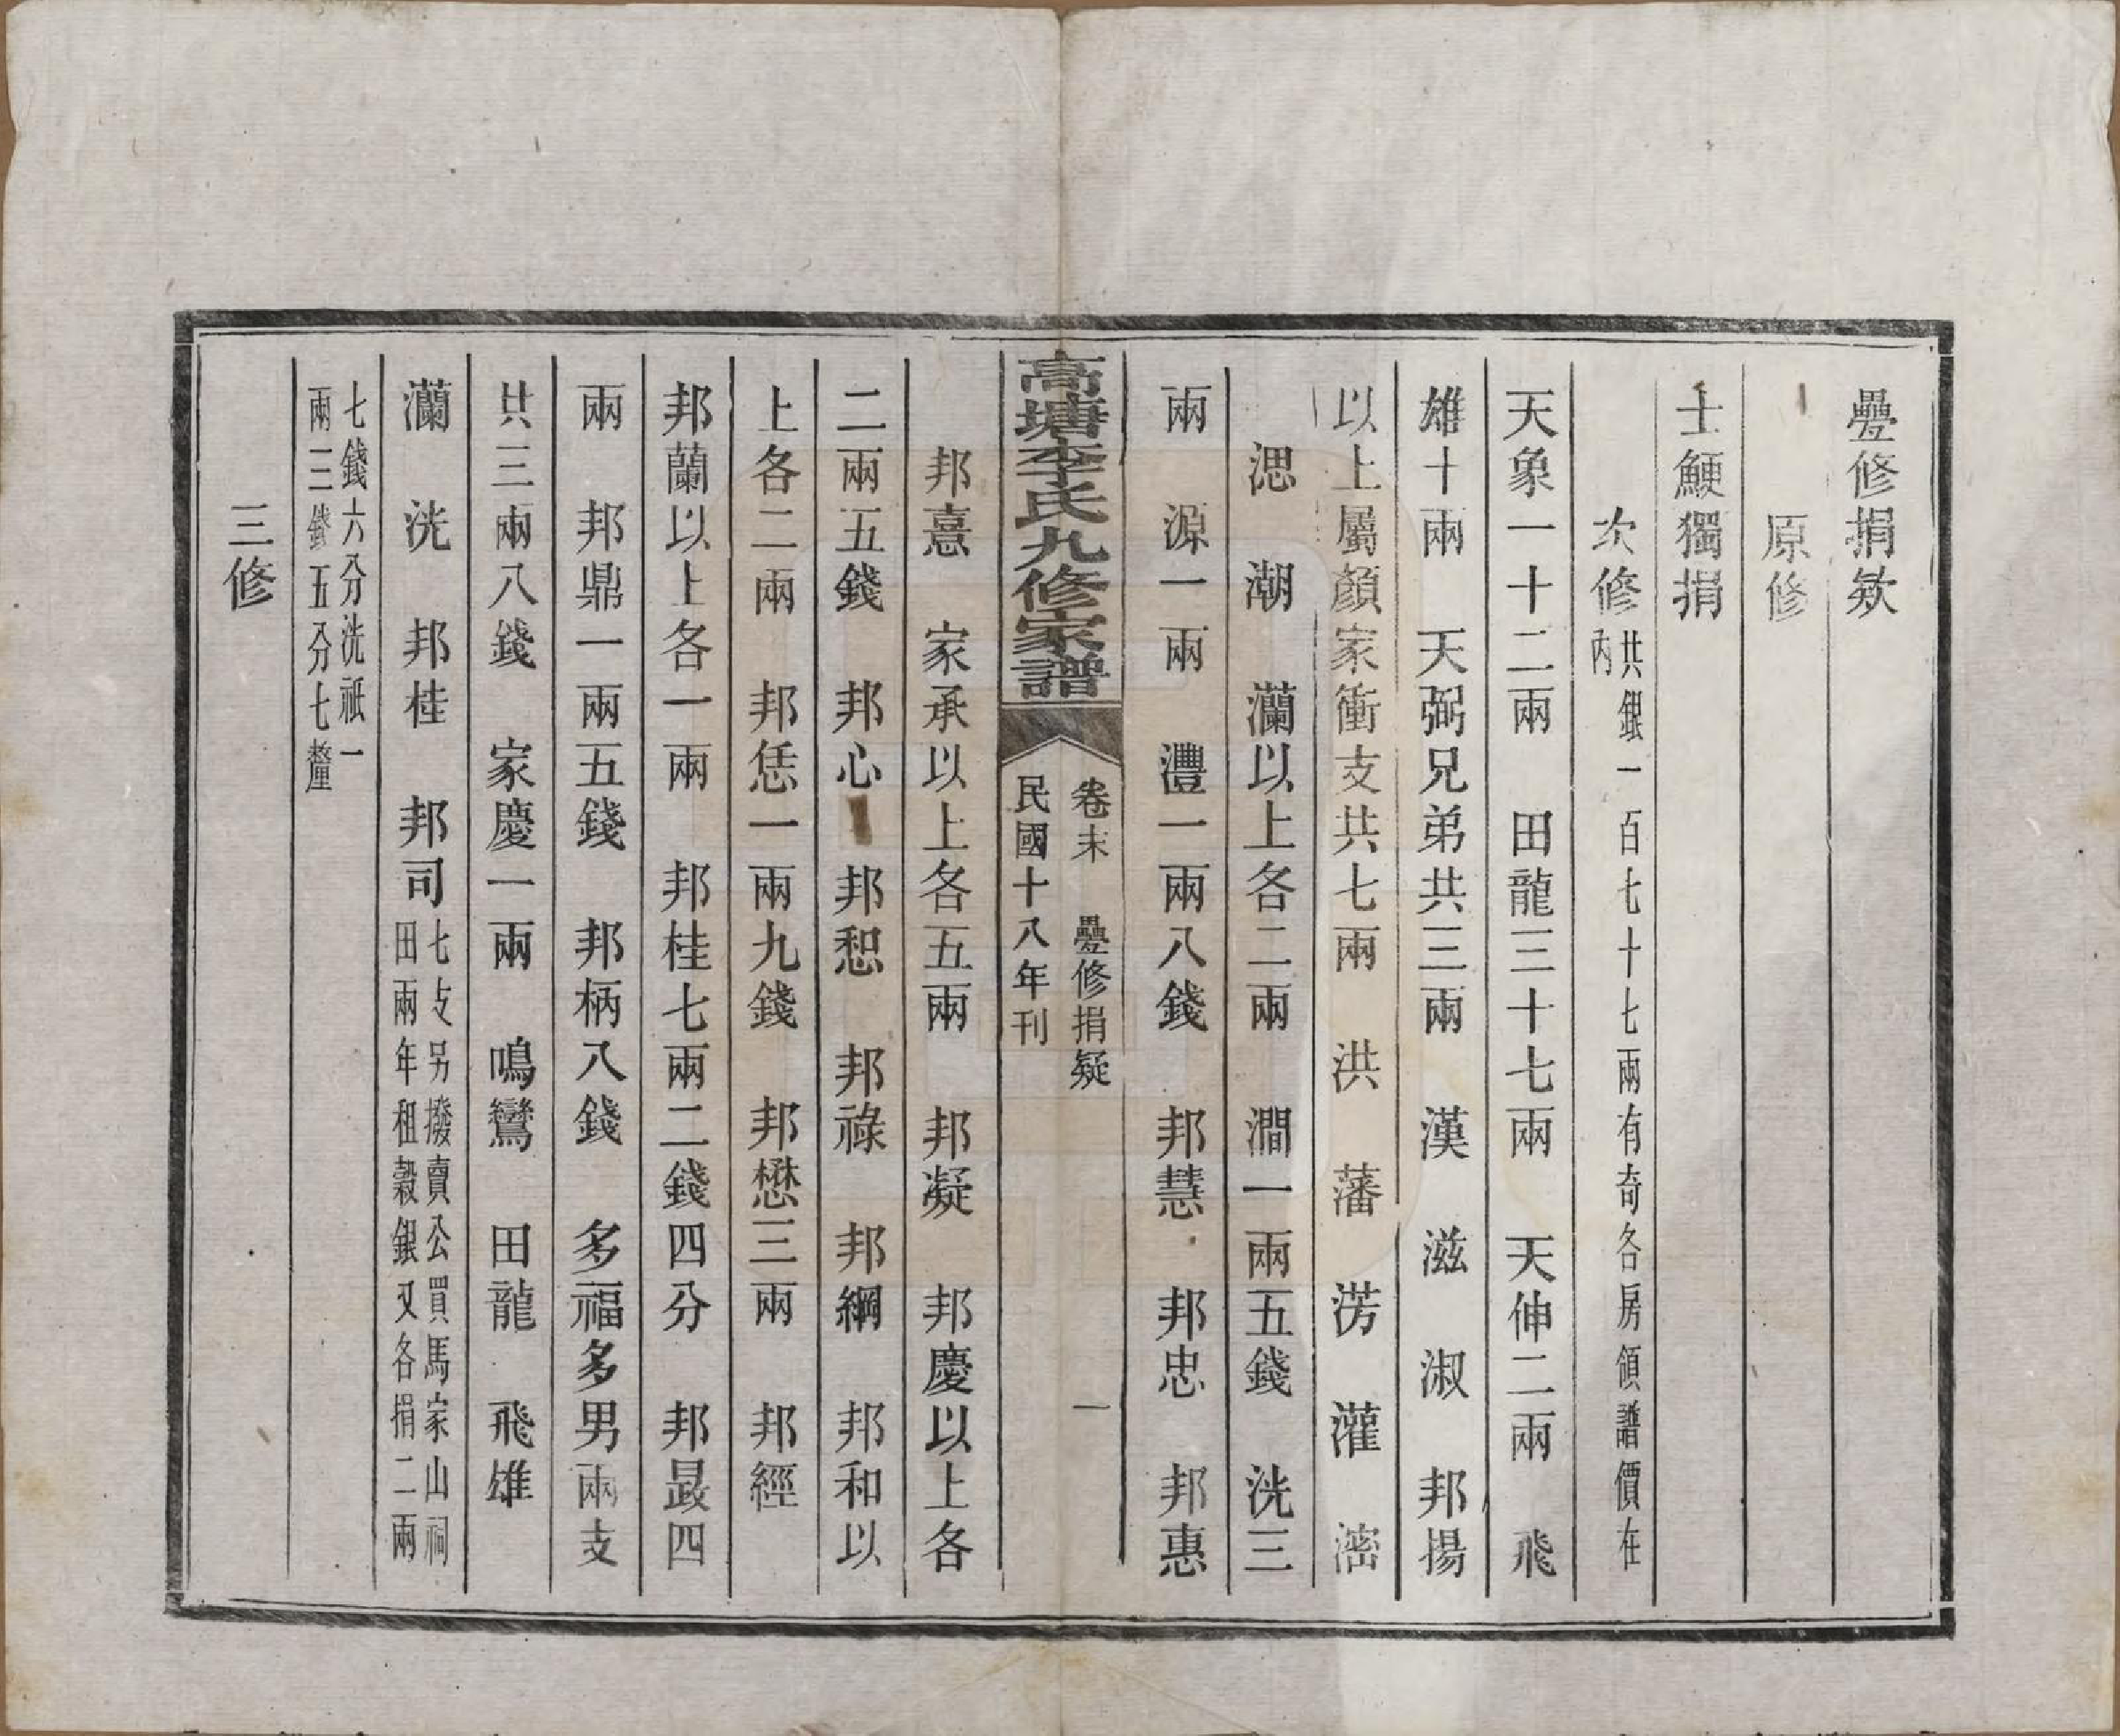 疊修捐欵
原修
士鯁獨捐
次修共銀一百七十七兩有奇各房領譜價在
內
天象一十二兩　田龍三十七兩　天伸二兩　飛
雄十兩　天弼兄弟共三兩　漢　滋　淑　邦揚
以上屬顏家衝支共七兩　洪　藩　淓　灌　滵
淴　潮　瀾以上各二兩　澗一兩五錢　洸三
兩　源一兩　灃一兩八錢　邦慧　邦忠　邦惠
高塘李氏九修家譜
卷末　疊修捐疑　一
民國十八年刊
邦憙　家承以上各五兩　邦凝　邦慶以上各
二兩五錢　邦心　邦恕　邦祿　邦綱　邦和以
上各二兩　邦恁一兩九錢　邦懋三兩　邦經
邦蘭以上各一兩　邦桂七兩二錢四分　邦晸四
兩　邦鼎一兩五錢　邦柄八錢　多福多男兩支
共三兩八錢　家慶一兩　鳴鸞　田龍　飛雄
瀾　洸　邦桂　邦司七支另撥賣公買馬家山祠
田兩年租穀銀又各捐二兩
七錢六分洸祇一
兩三錢五分七釐
三修